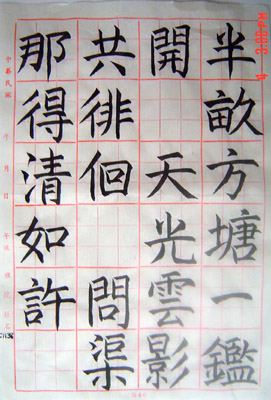 半畝方塘一鑑
開 天光雲影
共徘徊 問渠
那得清如許
中華民國